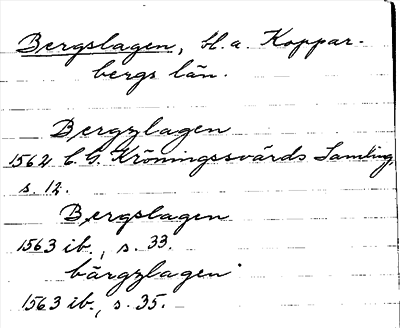 Bergslagen, bl. a. Koppar-
bergs län.
Bergzlagen
1562 C. G. Kröningssvärds Samling,
s. 12.
Bergslagen
1563 ib., s. 33.
bärgzlagen
1563 ib., s. 35.